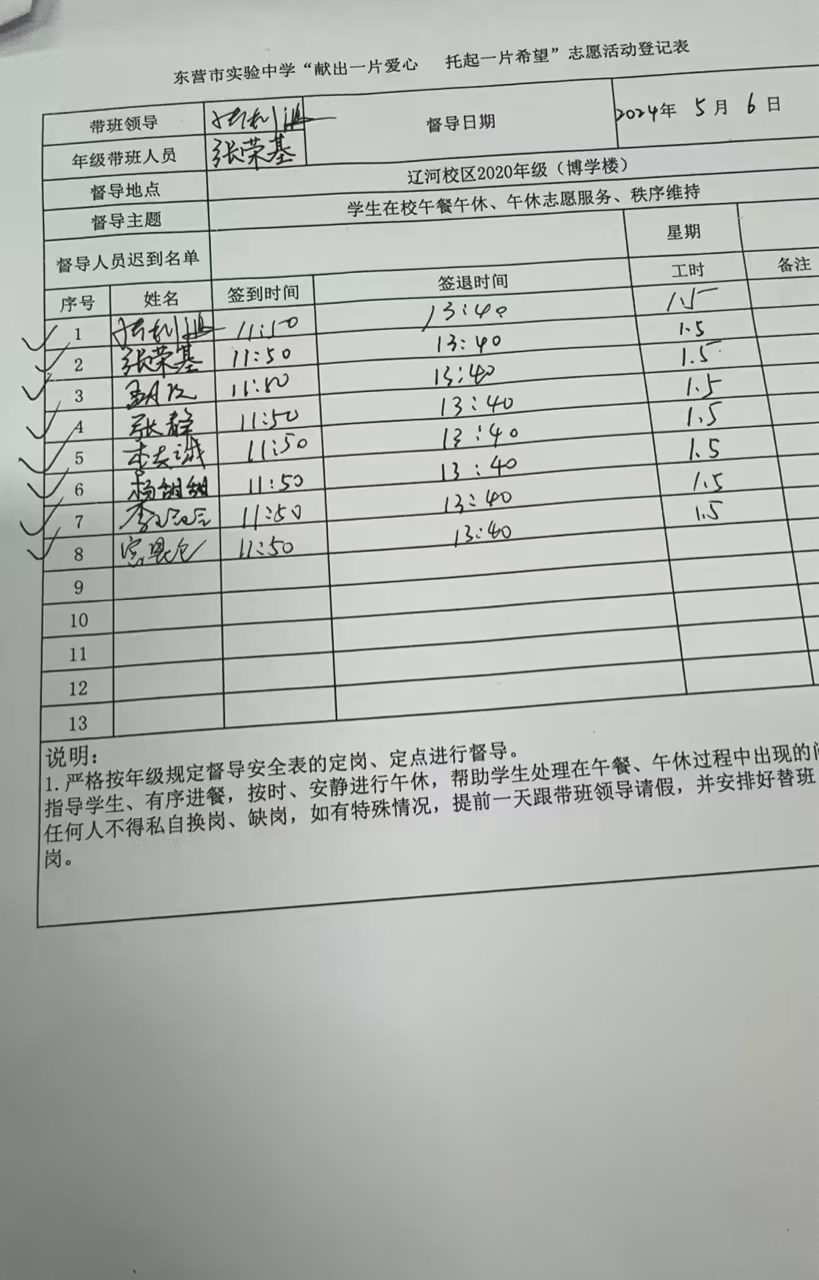 东营市实验中学“献出一片爱心 托起一片希望”志愿活动登记表
带班领导 督导日期 2024年 5月 6日
年级带班人员 张荣基
督导地点 辽河校区2020年级（博学楼）
督导主题 学生在校午餐午休、午休志愿服务、秩序维持
督导人员迟到名单 星期
序号 姓名 签到时间 签退时间 工时 备注
1 11:50 13:40 1.5
2 张荣基 11:50 13:40 1.5
3 11:50 13:40 1.5
4 张静 11:50 13:40 1.5
5 11:50 13:40 1.5
6 杨甜甜 11:50 13:40 1.5
7 11:50 13:40 1.5
8 11:50 13:40 1.5
9
10
11
12
13
说明：
1. 严格按年级规定督导安全表的定岗、定点进行督导。
指导学生、有序进餐，按时、安静进行午休，帮助学生处理在午餐、午休过程中出现的
任何人不得私自换岗、缺岗，如有特殊情况，提前一天跟带班领导请假，并安排好替班
岗。